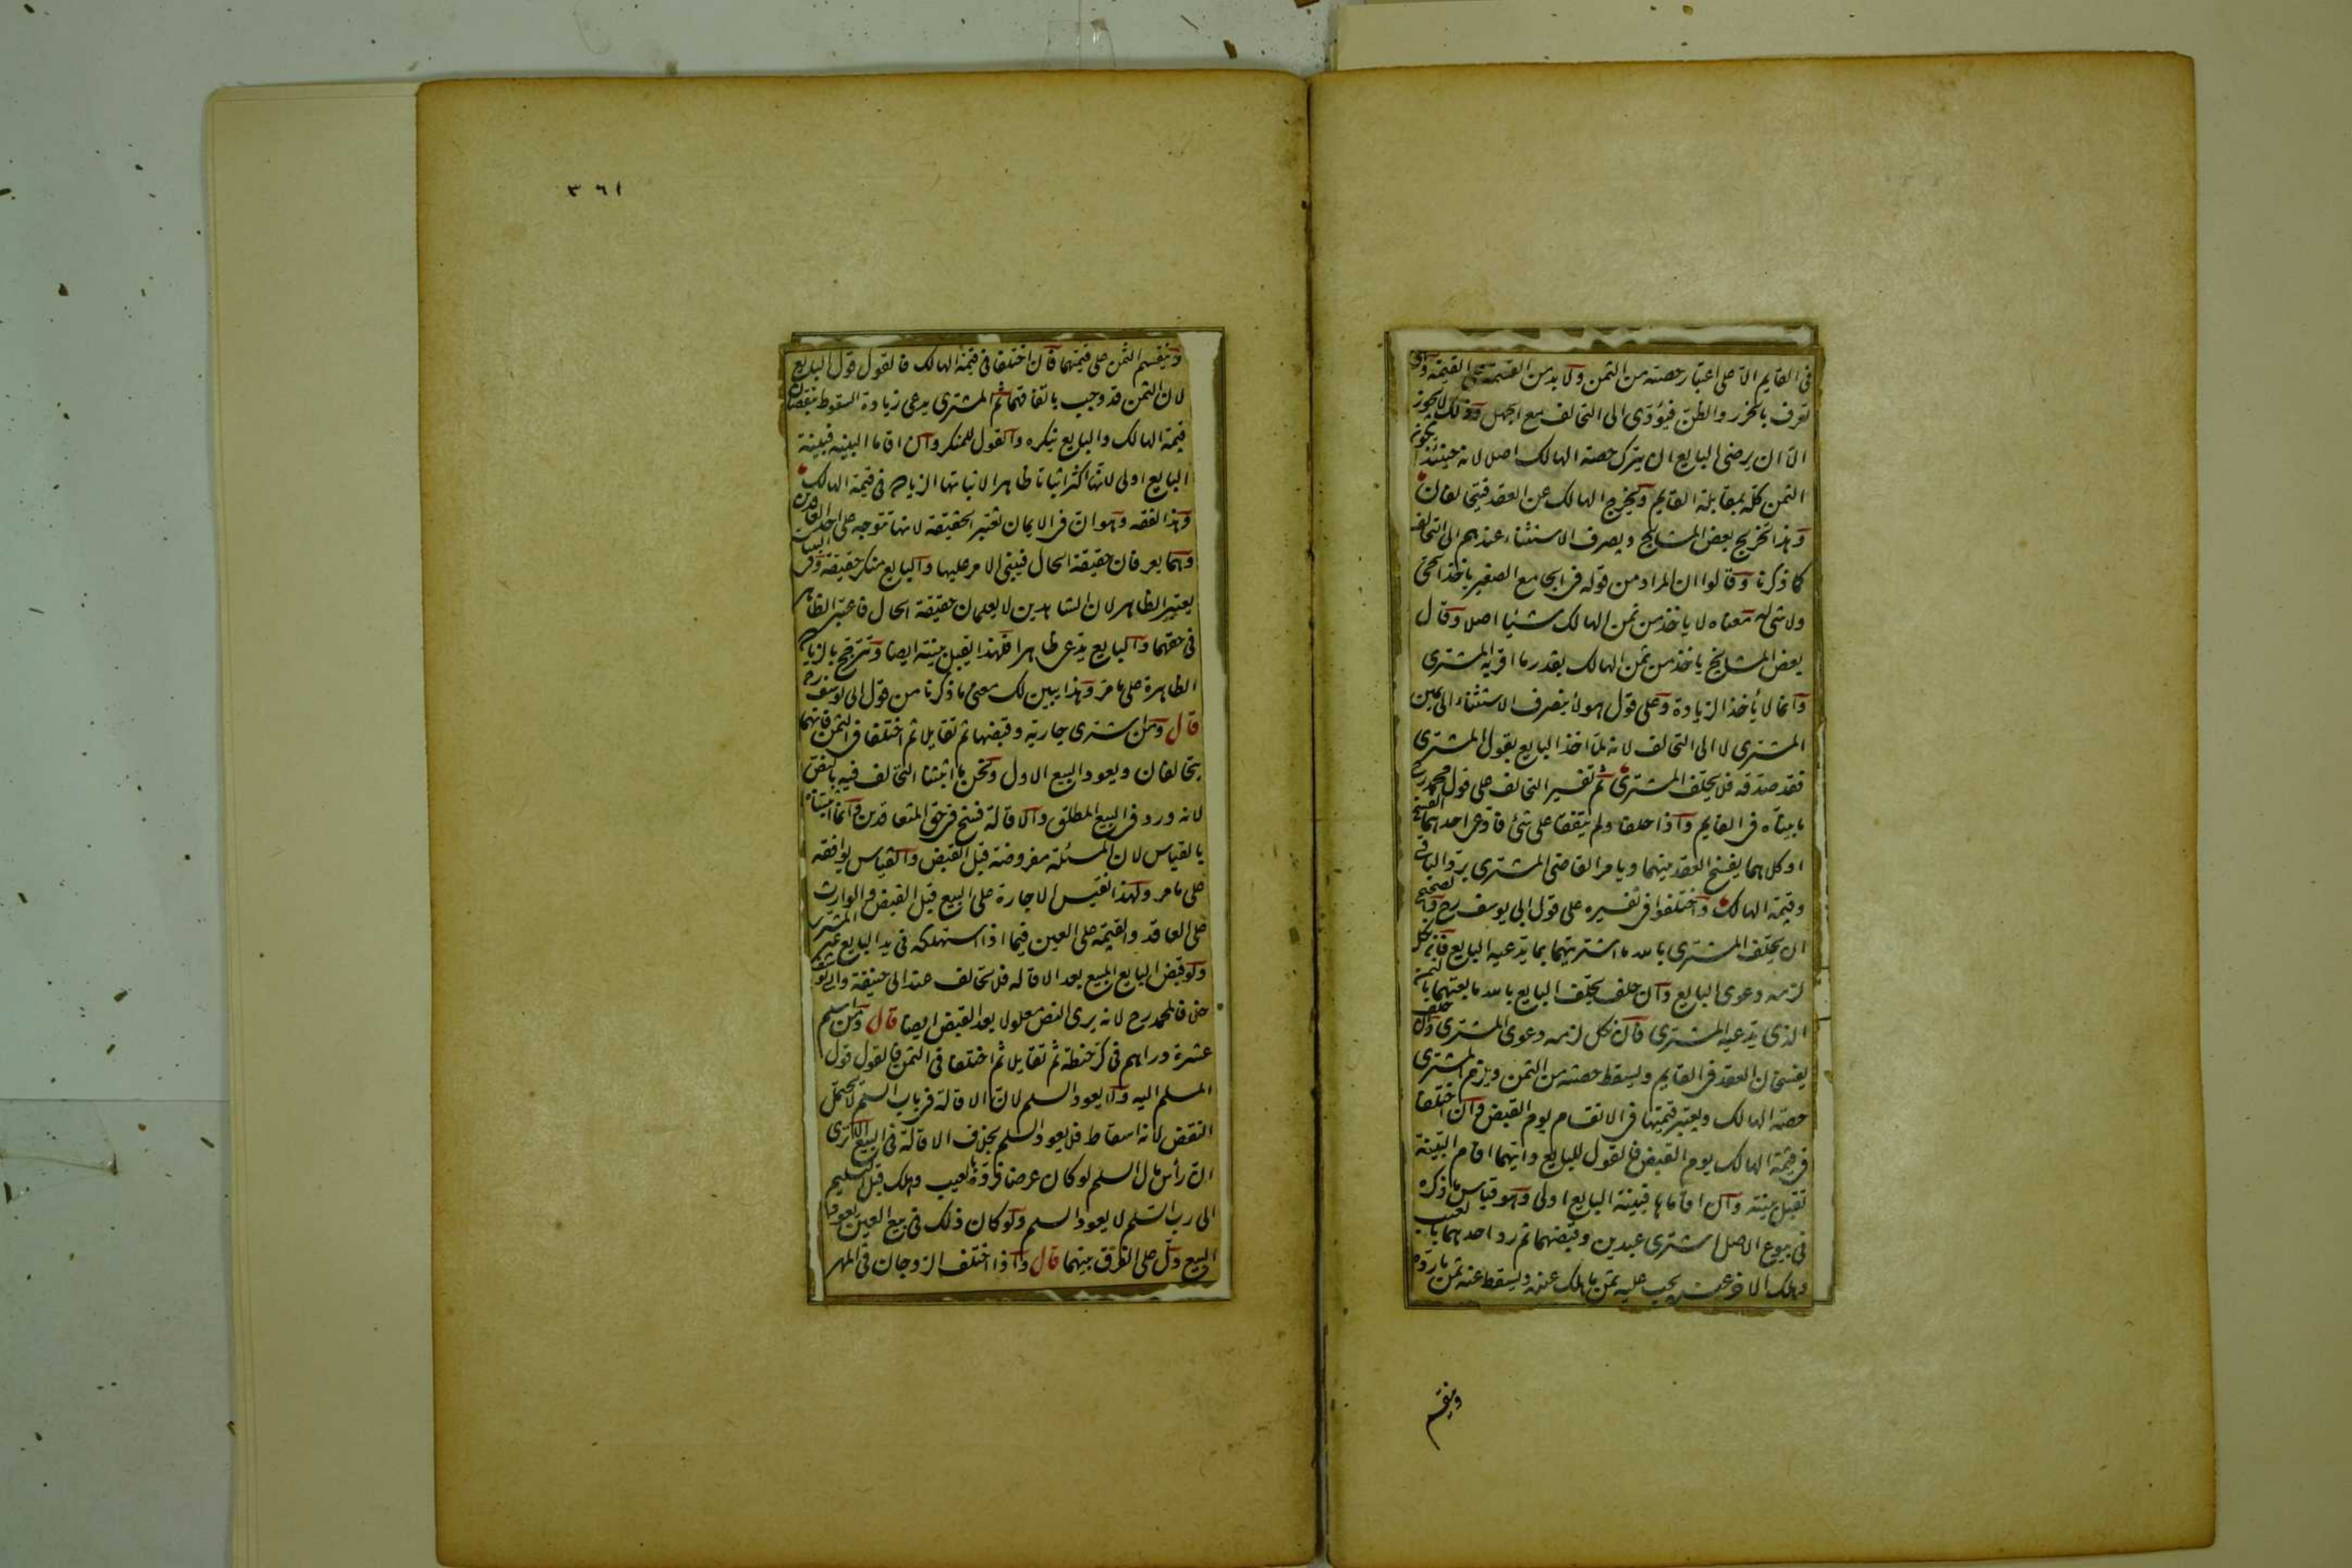 في القايم الا على اعتبار حصته من الثمن ولا بد من القسمة على القيمة وهي
تعرف بالحزر والظن فيؤدى الى التحالف مع الجهل وذلك لا يجوز
الا ان يرضى البايع ان يترك حصة الهالك اصلا لانه حينئذ يكون
الثمن كله بمقابلة القايم ويخرج الهالك عن العقد فيتحالفان
وهذا تخريج بعض المشايخ ويصرف الاستثناء عندهم الى التحالف
كما ذكرنا وقالوا ان المراد من قوله في الجامع الصغير ياخذ الحي
ولا شي له معناه لا ياخذ من ثمن الهالك شيئا اصلا وقال
بعض المشايخ ياخذ من ثمن الهالك بقدر ما اقر به المشترى
وانما لا يأخذ الزيادة وعلى قول هولاء ينصرف الاستثناء الى يمين
المشترى لا الى التحالف لانه لما اخذ البايع بقول المشترى
فقد صدقه فلا يحلف المشترى ثم تفسير التحالف على قول محمد رح
ما بيناه في القايم واذا حلفا ولم يتفقا على شئ فادعى احدهما الفسخ
او كلاهما يفسخ العقد بينهما ويامر القاضى المشترى برد الباقى
وقيمة الهالك واختلفوا في تفسيره على قول ابى يوسف رح والصحيح
ان يحلف المشترى بالله ما اشتريتهما بما يدعيه البايع فان نكل
لزمه دعوى البايع وان حلف يحلف البايع بالله ما بعتهما بالثمن
الذى يدعيه المشترى فان نكل لزمه دعوى المشترى وان حلف
يفسخان العقد في القايم ويسقط حصته من الثمن ويلزم المشترى
حصة الهالك ويعتبر قيمتهما في الانقسام يوم القبض وان اختلفا
في قيمة الهالك يوم القبض فالقول للبايع وايهما اقام البينة
تقبل بينته وان اقاماها فبينة البايع اولى وهو قياس ما ذكره
في بيوع الاصل اشترى عبدين وقبضهما ثم رد احدهما بالعيب
وهلك الاخر عنده يجب عليه ثمن ما هلك عنده ويسقط عنه ثمن ما رده
وينقسم
٣٦١
وينقسم الثمن على قيمتهما فان اختلفا في قيمة الهالك فالقول قول البايع
لان الثمن قد وجب باتفاقهما ثم المشترى يدعى زيادة السقوط بنقصان
قيمة الهالك والبايع ينكره والقول للمنكر وان اقاما البينة فبينة
البايع اولى لانها اكثر اثباتا ظاهرا لاثباتها الزيادة في قيمة الهالك
وهذا لفقه وهو ان في الايمان تعتبر الحقيقة لانها تتوجه على احد العاقدين
وهما يعرفان حقيقة الحال فيبنى الامر عليها والبايع منكر حقيقة وفي البينات
يعتبر الظاهر لان الشاهدين لا يعلمان حقيقة الحال فاعتبر الظاهر
في حقهما والبايع يدعى ظاهرا فلهذا يقبل بينته ايضا وتترجح بالزيادة
الظاهرة على ما مر وهذا يبين لك معنى ما ذكرنا من قول ابى يوسف رح
قال ومن اشترى جارية وقبضها ثم تقايلا ثم اختلفا في الثمن فانهما
يتحالفان ويعود البيع الاول ونحن ما اثبتنا التحالف فيه بالنص
لانه ورد في البيع المطلق والاقالة فسخ في حق المتعاقدين وانما اثبتناه
بالقياس لان المسئلة مفروضة قبل القبض والقياس يوافقه
على ما مر ولهذا نقيس الاجارة على البيع قبل القبض والوارث
على العاقد والقيمة على العين فيما اذا استهلكه في يد البايع غير المشترى
ولو قبض البايع المبيع بعد الاقالة فلا تحالف عند ابى حنيفة وابى يوسف
خلافا لمحمد رح لانه يرى النص معلولا بعد القبض ايضا قال ومن اسلم
عشرة دراهم في كر حنطة ثم تقايلا ثم اختلفا في الثمن فالقول قول
المسلم اليه ولا يعود السلم لان الاقالة في باب السلم لا تحتمل
النقض لانه اسقاط فلا يعود السلم بخلاف الاقالة في البيع الا ترى
ان رأس مال السلم لو كان عرضا فرده بالعيب وهلك قبل التسليم
الى رب السلم لا يعود السلم ولو كان ذلك في بيع العين يعود
البيع دل على الفرق بينهما قال واذا اختلف الزوجان في المهر